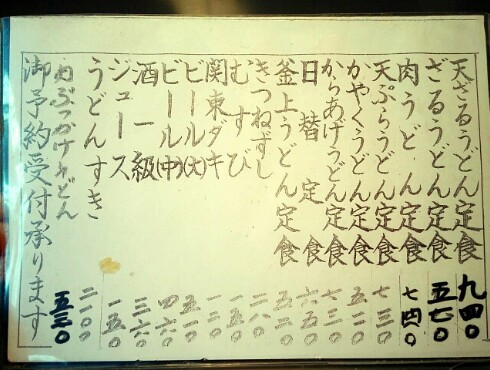 天ざるうどん定食 九四〇
ざるうどん定食 五七〇
肉うどん定食 七四〇
天ぷらうどん定食 七三〇
かやくうどん定食 五二〇
からあげうどん定食 七三〇
日替定食 六五〇
釜上うどん定食
きつねずし 二八〇
むすび 一五〇
関東ダキ 一二〇
ビール(大) 五一〇
ビール(中) 四六〇
酒一級 三六〇
ジュース 一五〇
うどんすき 二一〇〇
ぶっかけうどん 五三〇
御予約受付承ります